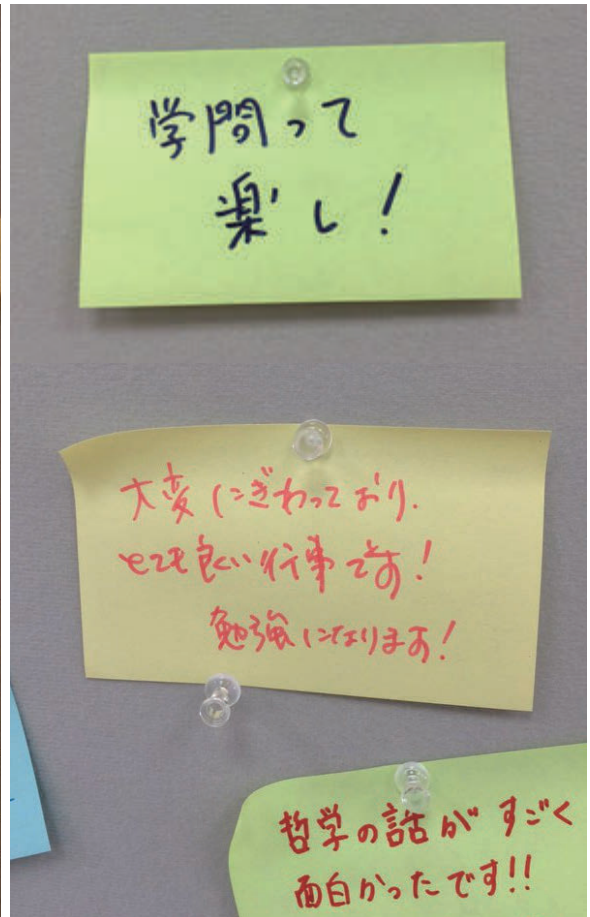 学問って
楽し!
大変にぎわっており、
とても良い行事です!
勉強になります!
哲学の話がすごく
面白かったです!!